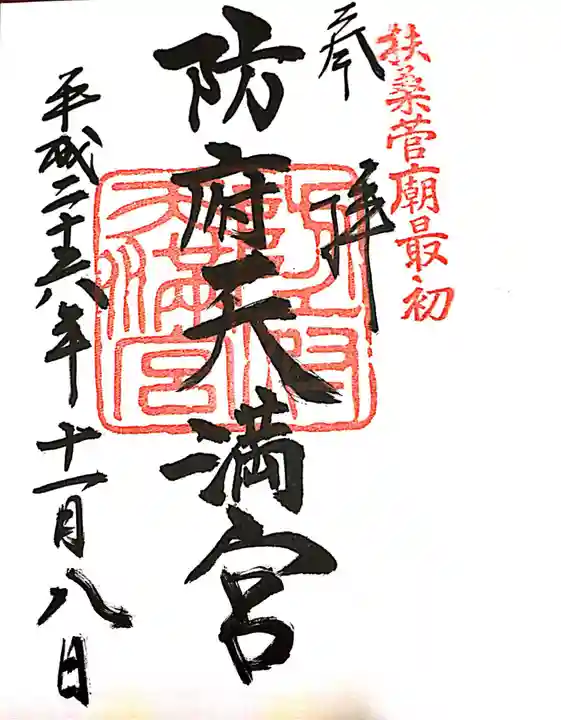 扶桑菅廟最初
奉拝
防府天満宮
防府天満宮
平成二十六年十一月八日